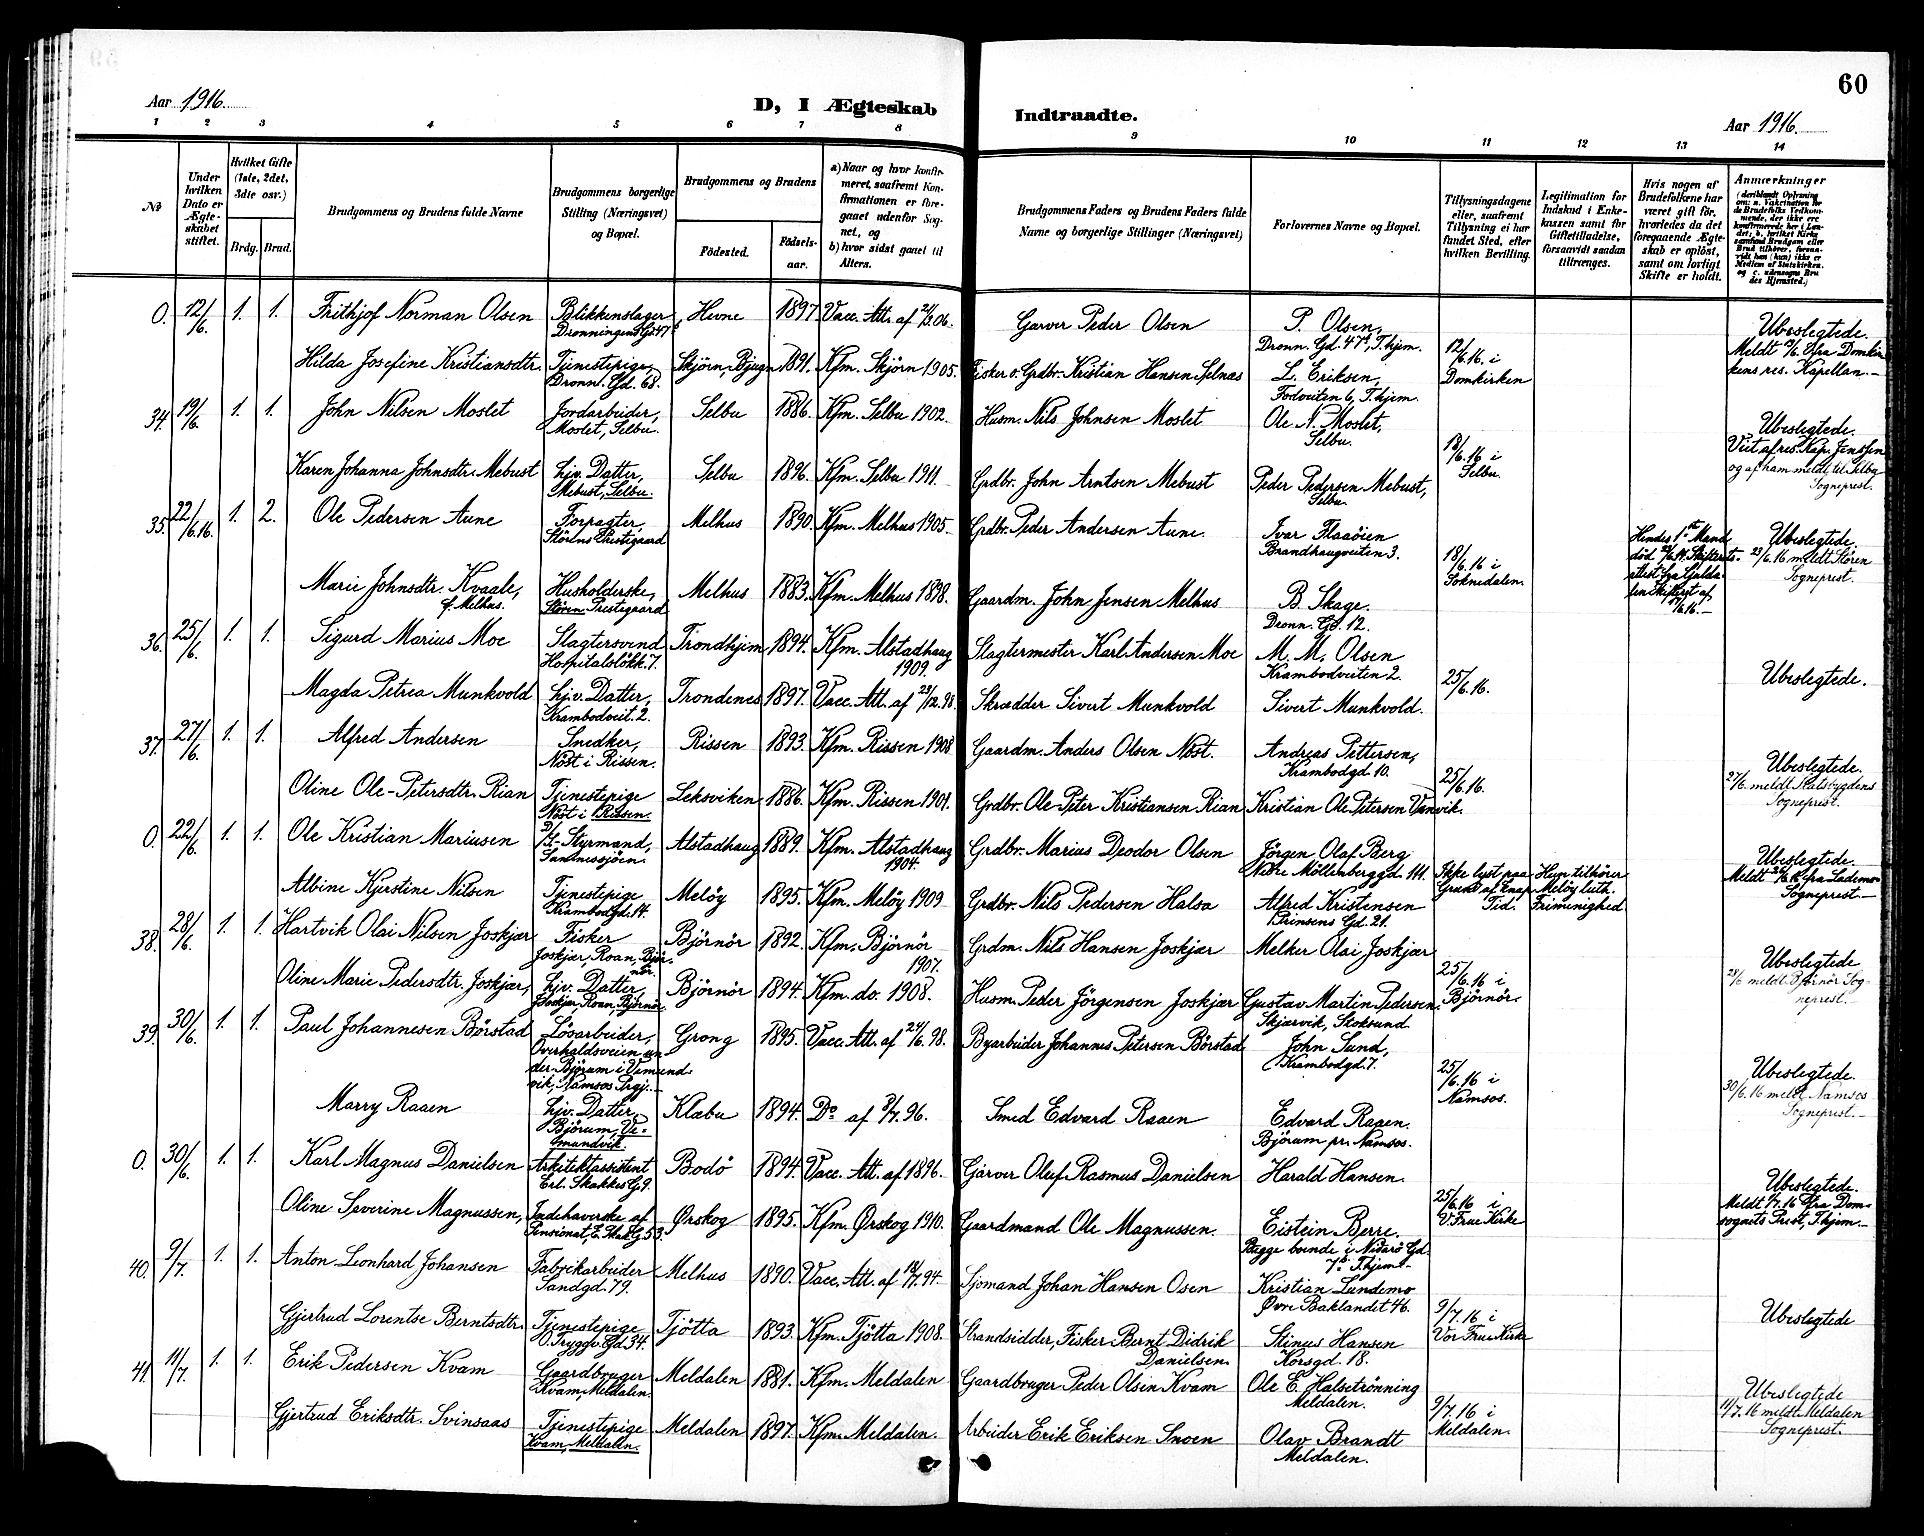 60
Aar 1916.
D, I Ægteskab
Indtraadte.
Aar 1916.
1 2 3 4 5 6 7 8 9 10 11 12 13 14
No
Under hvilken Dato er Ægteskabet stiftet.
Hvilket Gifte (1ste, 2det, 3die osv.)
Brdg. Brud.
Brudgommens og Brudens fulde Navne
Brudgommens borgerlige Stilling (Næringsvei) og Bopæl.
Brudgommens og Brudens
Födested.
Födselsaar.
a) Naar og hvor konfirmeret, saafremt Konfirmationen er foregaaet udenfor Sognet, og
b) hvor sidst gaaet til Alters.
Brudgommens Faders og Brudens Faders fulde Navne og borgerlige Stillinger (Næringsvei)
Forlovernes Navne og Bopæl.
Tillysningsdagene eller, saafremt Tillysning ei har fundet Sted, efter hvilken Bevilling.
Legitimation for Indskud i Enkekassen samt for Giftetilladelse, forsaavidt saadan tiltrænges.
Hvis nogen af Brudefolkene har været gift för, hvorledes da det foregaaende Ægteskab er oplöst, samt om lovligt Skifte er holdt.
Anmærkninger
(deriblandt Oplysning om: a. Vakcination for de Brudefolks Vedkommende, der ikke ere konfirmerede her i Landet; b. hvilket Kirkesamfund Brudgom eller Brud tilhörer, forsaavidt han (hun) ikke er Medlem af Statskirken, og c. udensogns Brudes Hjemsted.)
0. 12/6. 1. 1. Frithjof Norman Olsen Blikkenslager, Hevne 1897 Vacc. Att. af 21/3.06. Garver Peder Olsen P. Olsen, Ubeslegtede.
Dronningens Gd 47b Dronn. Gd. 47b, T.hjem. 12/6.16. i Meldt 12/6. 16 fra Domkir-
Hilda Josefine Kristiansdtr. Tjenestepige, Skjörn, Bjugn 1891. Kfm. Skjörn 1905. Fisker o. Grdbr. Kristian Hansen Selnæs L. Eriksen, Domkirken kens res. Kapellan.-
Dronn. Gd. 68. Fodveiten 6, T.hjem.
34. 19/6. 1. 1. John Nilsen Moslet Jordarbeider, Selbu 1886. Kfm. Selbu 1902. Husm. Nils Johnsen Moslet Ole N. Moslet, Ubeslegtede.
Moslet, Selbu. Selbu. 18/6.16 i Viet af res. Kap. Jenssen
Karen Johanna Johnsdtr. Mebust hjv. Datter, Selbu 1896. Kfm. Selbu 1911. Grdbr. John Arntsen Mebust Peder Pedersen Mebust, Selbu. og af ham meldt til Selbu
Mebust, Selbu. Selbu. Sogneprest.
35. 22/6.16. 1. 2. Ole Pedersen Aune Forpagter, Melhus 1890. Kfm. Melhus 1905. Grdbr. Peder Andersen Aune. Ivar Flaaöien Hendes 1ste Mand Ubeslegtede.
Störens Prestegaard Brandhaugveiten 3. 18/6.16 i 23/6.16 meldt Stören
Marie Johnsdtr. Kvaale, Husholderske, Melhus 1883. Kfm. Melhus 1898. Gaardm. John Jensen Melhus B. Skage. Soknedalen. Sogneprest.
f. Melhus. Stören Prestegaard Dronn. Gd. 12.
36. 25/6. 1. 1. Sigurd Marius Moe Slagtersvend Trondhjem 1894. Kfm. Alstadhaug Slagtermester Karl Andersen Moe M. M. Olsen
Hospitalslökk. 7. 1909. Krambodveiten 2. 25/6.16. Ubeslegtede.
Magda Petrea Munkvold hjv. Datter, Trondenes 1897. Vacc. Att. af 23/12.98. Skrædder Sivert Munkvold Sivert Munkvold.
Krambodveit. 2.
37. 27/6. 1. 1. Alfred Andersen Snedker, Rissen 1893. Kfm. Rissen 1908 Gaardm. Anders Olsen Nöst. Andreas Pettersen, Ubeslegtede.
Nöst i Rissen. Krambodgd. 10. 25/6.16. 27/6. meldt Stadsbygdens
Oline Ole-Petersdtr. Rian Tjenestepige Leksviken 1886. Kfm. Rissen 1901. Grdbr. Ole Peter Kristiansen Rian Kristian Ole Petersen Vanvik. Sogneprest.
Nöst i Rissen.
0. 22/6. 1. 1. Ole Kristian Mariusen Styrmand, Alstadhaug 1889. Kfm. Alstadhaug Grdbr. Marius Deodor Olsen Jörgen Olaf Berg Ubeslegtede.
Sannessjöen. 1904. Nedre Möllenberggd. 111. Ikke lyst paa Hun tilhörer Meldt fra Lademo-
Albine Kjerstine Nilsen Tjenestepige Melöy 1895. Kfm. Melöy 1909 Grdbr. Nils Pedersen Halsa Alfred Kristensen Grund af knap Melöy luth. Sogneprest.-
Krambodgd. 14. Prinsens Gd. 21. Tid. Frimenighed
38. 28/6. 1. 1. Hartvik Olai Nilsen Joskjær Fisker Björnör 1892. Kfm. Björnör Grdm. Nils Hansen Joskjær Melker Olai Joskjær Ubeslegtede
Joskjær, Roan, Björnör. 1907. 25/6.16 i meldt Björnör Sog-
Oline Marie Pedersdtr. Joskjær, hjv. Datter, Björnör 1894. Kfm. do. 1908. Husm. Peder Jörgensen Joskjær Gustav Martin Pedersen. Björnör. neprest.
Joskjær, Roan, Björnör. Skjærvik, Stoksund.
39. 30/6. 1. 1. Paul Johannesen Börstad Lösarbeider, Grong 1895. Vacc. Att. af 24/6.98. Byarbeider Johannes Petersen Börstad John Sund,
Overhaldsveien un- Krambodgd. 7. 25/6.16 i Ubeslegtede.
der Björum i Vemund- 30/6.16 meldt Namsos
vik, Namsos Prgj. Namsos. Sogneprest.-
Marry Raaen hjv. Datter, Klæbu 1894. Do af 3/7.96. Smed Edvard Raaen Edvard Raaen.
Björum, Ve- Björum pr. Namsos.
mundvik.
0. 30/6. 1. 1. Karl Magnus Danielsen Arkitektassistent Bodö 1894. Vacc. Att. af 1896. Garver Oluf Rasmus Danielsen Harald Hansen. Ubeslegtede.
Erl. Skakkes G. 9. 25/6.16 i Meldt 1/7.16 fra Dom-
Oline Severine Magnussen, Indehaverske af Ørskog 1895. Kfm. Ørskog 1910. Gaardmand Ole Magnussen. Eistein Berre. V. Frue Kirke sognets Prest, T.hjem.-
Pensionat, E. Skak. G. 53. Begge boende i Nidarö Gd.
7b T.hjem.-
40. 9/7. 1. 1. Anton Leonhard Johansen Fabrikarbeider Melhus 1890. Vacc. Att. af 18/7.94. Sjömand Johan Hansen Osen Kristian Lundemo
Sandgd. 79. Øvre Baklandet 46. 9/7.16 i Ubeslegtede
Gjertrud Lorentse Berntsdtr. Tjenestepige Tjötta 1893. Kfm. Tjötta 1908. Strandsidder, Fisker Bernt Didrik Stinus Hansen Vor Frue Kirke
O. Tryggv. Gd. 34. Danielsen. Korsgd. 18.
41. 11/7. 1. 1. Erik Pedersen Kvam Gaardbruger Meldalen 1881. Kfm. Meldalen Gaardbruger Peder Olsen Kvam Ole E. Halsetrönning Ubeslegtede
Kvam, Meldalen. Meldalen. 9/7.16 i 11/7.16 meldt Meldalen
Gjertrud Eriksdtr. Svinsaas Tjenestepige Meldalen 1897. Kfm. Meldalen. Arbeider Erik Eriksen Snoen Olav Brandt Meldalen. Sogneprest.
Kvam, Meldalen. Meldalen.